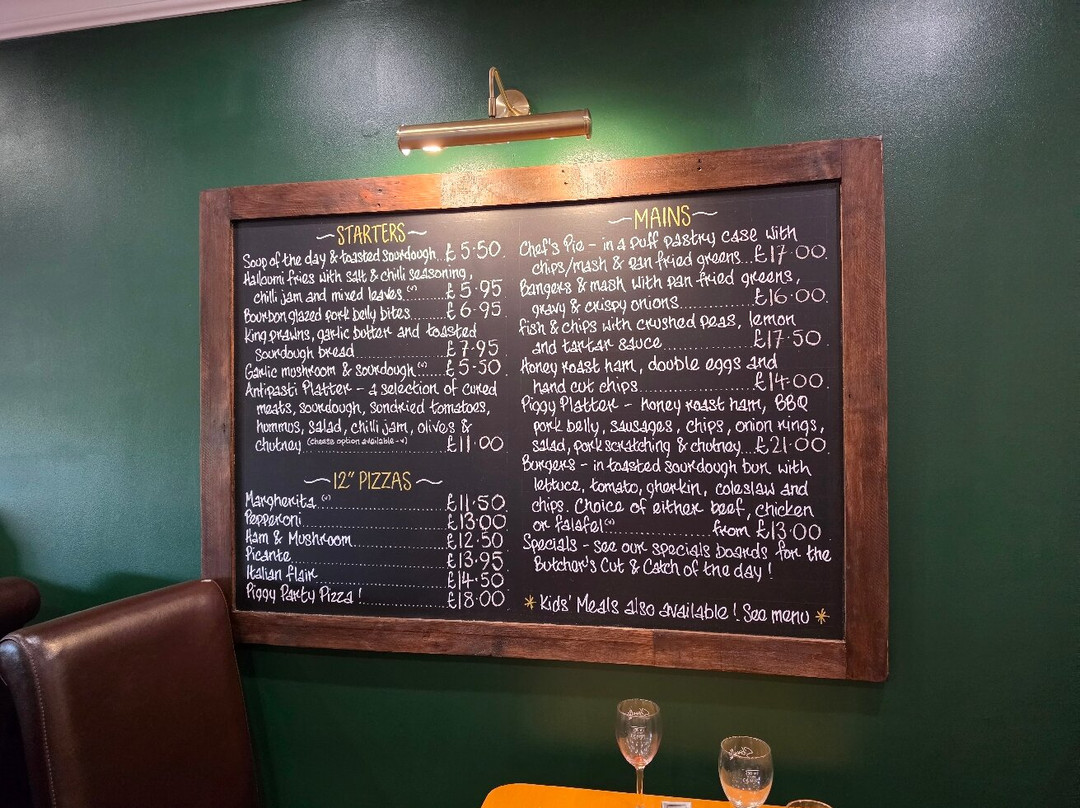 ~STARTERS~
Soup of the day & toasted sourdough...£5.50.
Halloumi fries with salt & chilli seasoning,
chilli jam and mixed leaves (v)........£5.95
Bourbon glazed pork belly bites........£6.95
King prawns, garlic butter and toasted
sourdough bread........£7.95
Garlic mushroom & sourdough (v)........£5.50
Antipasti Platter - a selection of cured
meats, sourdough, sundried tomatoes,
hummus, salad, chilli jam, olives &
chutney (cheese option available - v)........£11.00
~12" PIZZAS~
Margherita (v)........£11.50
Pepperoni........£13.00
Ham & Mushroom........£12.50
Picante........£13.95
Italian flair........£14.50
Piggy Party Pizza!........£18.00
~MAINS~
Chef's Pie - in a puff pastry case with
chips/mash & pan fried greens...£17.00.
Bangers & mash with pan fried greens,
gravy & crispy onions........£16.00.
Fish & chips with crushed peas, lemon
and tartar sauce........£17.50
Honey roast ham, double eggs and
hand cut chips........£14.00.
Piggy Platter - honey roast ham, BBQ
pork belly, sausages, chips, onion rings,
salad, pork scratching & chutney...£21.00
Burgers - in toasted sourdough bun with
lettuce, tomato, gherkin, coleslaw and
chips. Choice of either beef, chicken
or falafel (v)........from £13.00
Specials - see our specials boards for the
Butcher's Cut & Catch of the day!
*Kids' Meals also available! See menu*